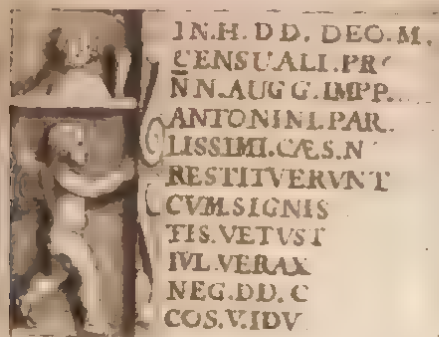 IN.H.DD. DEO.M.
CENSUALI.PR
NN.AUGG.IMPP.
ANTONINI.PAR.
LISSIMI.CÆS.N
RESTITVERVNT
CVM.SIGNIS
TIS.VETVST
IVL.VERAX
NEG.DD.C
COS.V.IDV